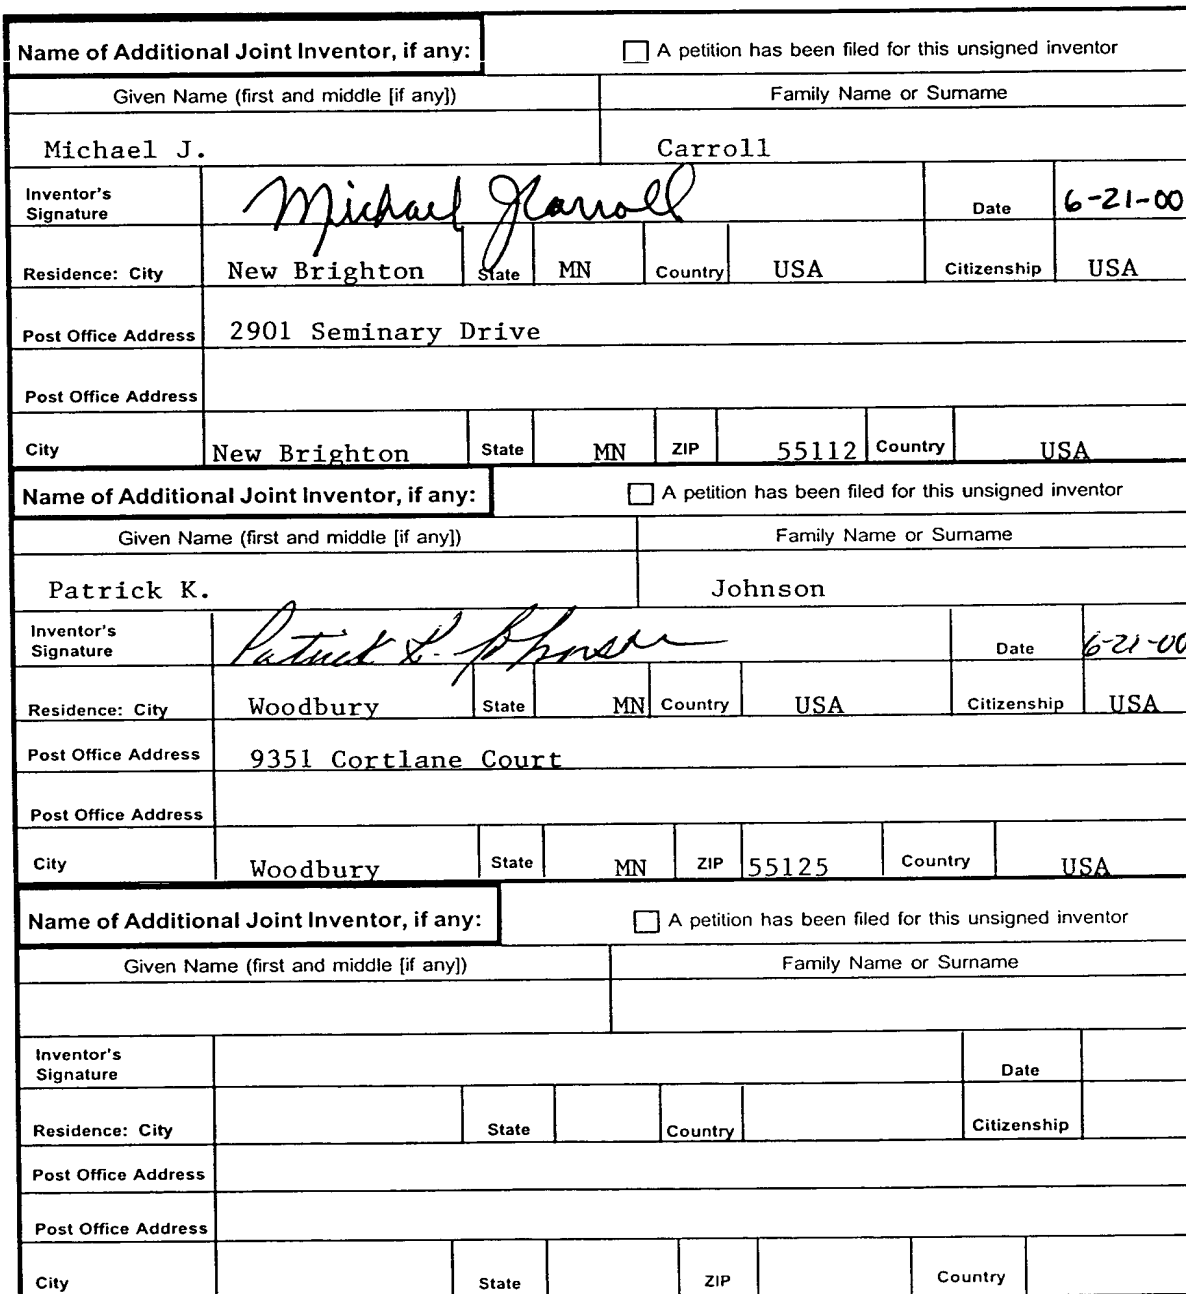 Name of Additional Joint Inventor, if any: A petition has been filed for this unsigned inventor
Given Name (first and middle [if any]) Family Name or Surname
Michael J. Carroll
Inventor's Signature Michael J Carroll Date 6-21-00
Residence: City New Brighton State MN Country USA Citizenship USA
Post Office Address 2901 Seminary Drive
Post Office Address
City New Brighton State MN ZIP 55112 Country USA
Name of Additional Joint Inventor, if any: A petition has been filed for this unsigned inventor
Given Name (first and middle [if any]) Family Name or Surname
Patrick K. Johnson
Inventor's Signature Patrick K. Johnson Date 6-21-00
Residence: City Woodbury State MN Country USA Citizenship USA
Post Office Address 9351 Cortlane Court
Post Office Address
City Woodbury State MN ZIP 55125 Country USA
Name of Additional Joint Inventor, if any: A petition has been filed for this unsigned inventor
Given Name (first and middle [if any]) Family Name or Surname
Inventor's Signature Date
Residence: City State Country Citizenship
Post Office Address
Post Office Address
City State ZIP Country